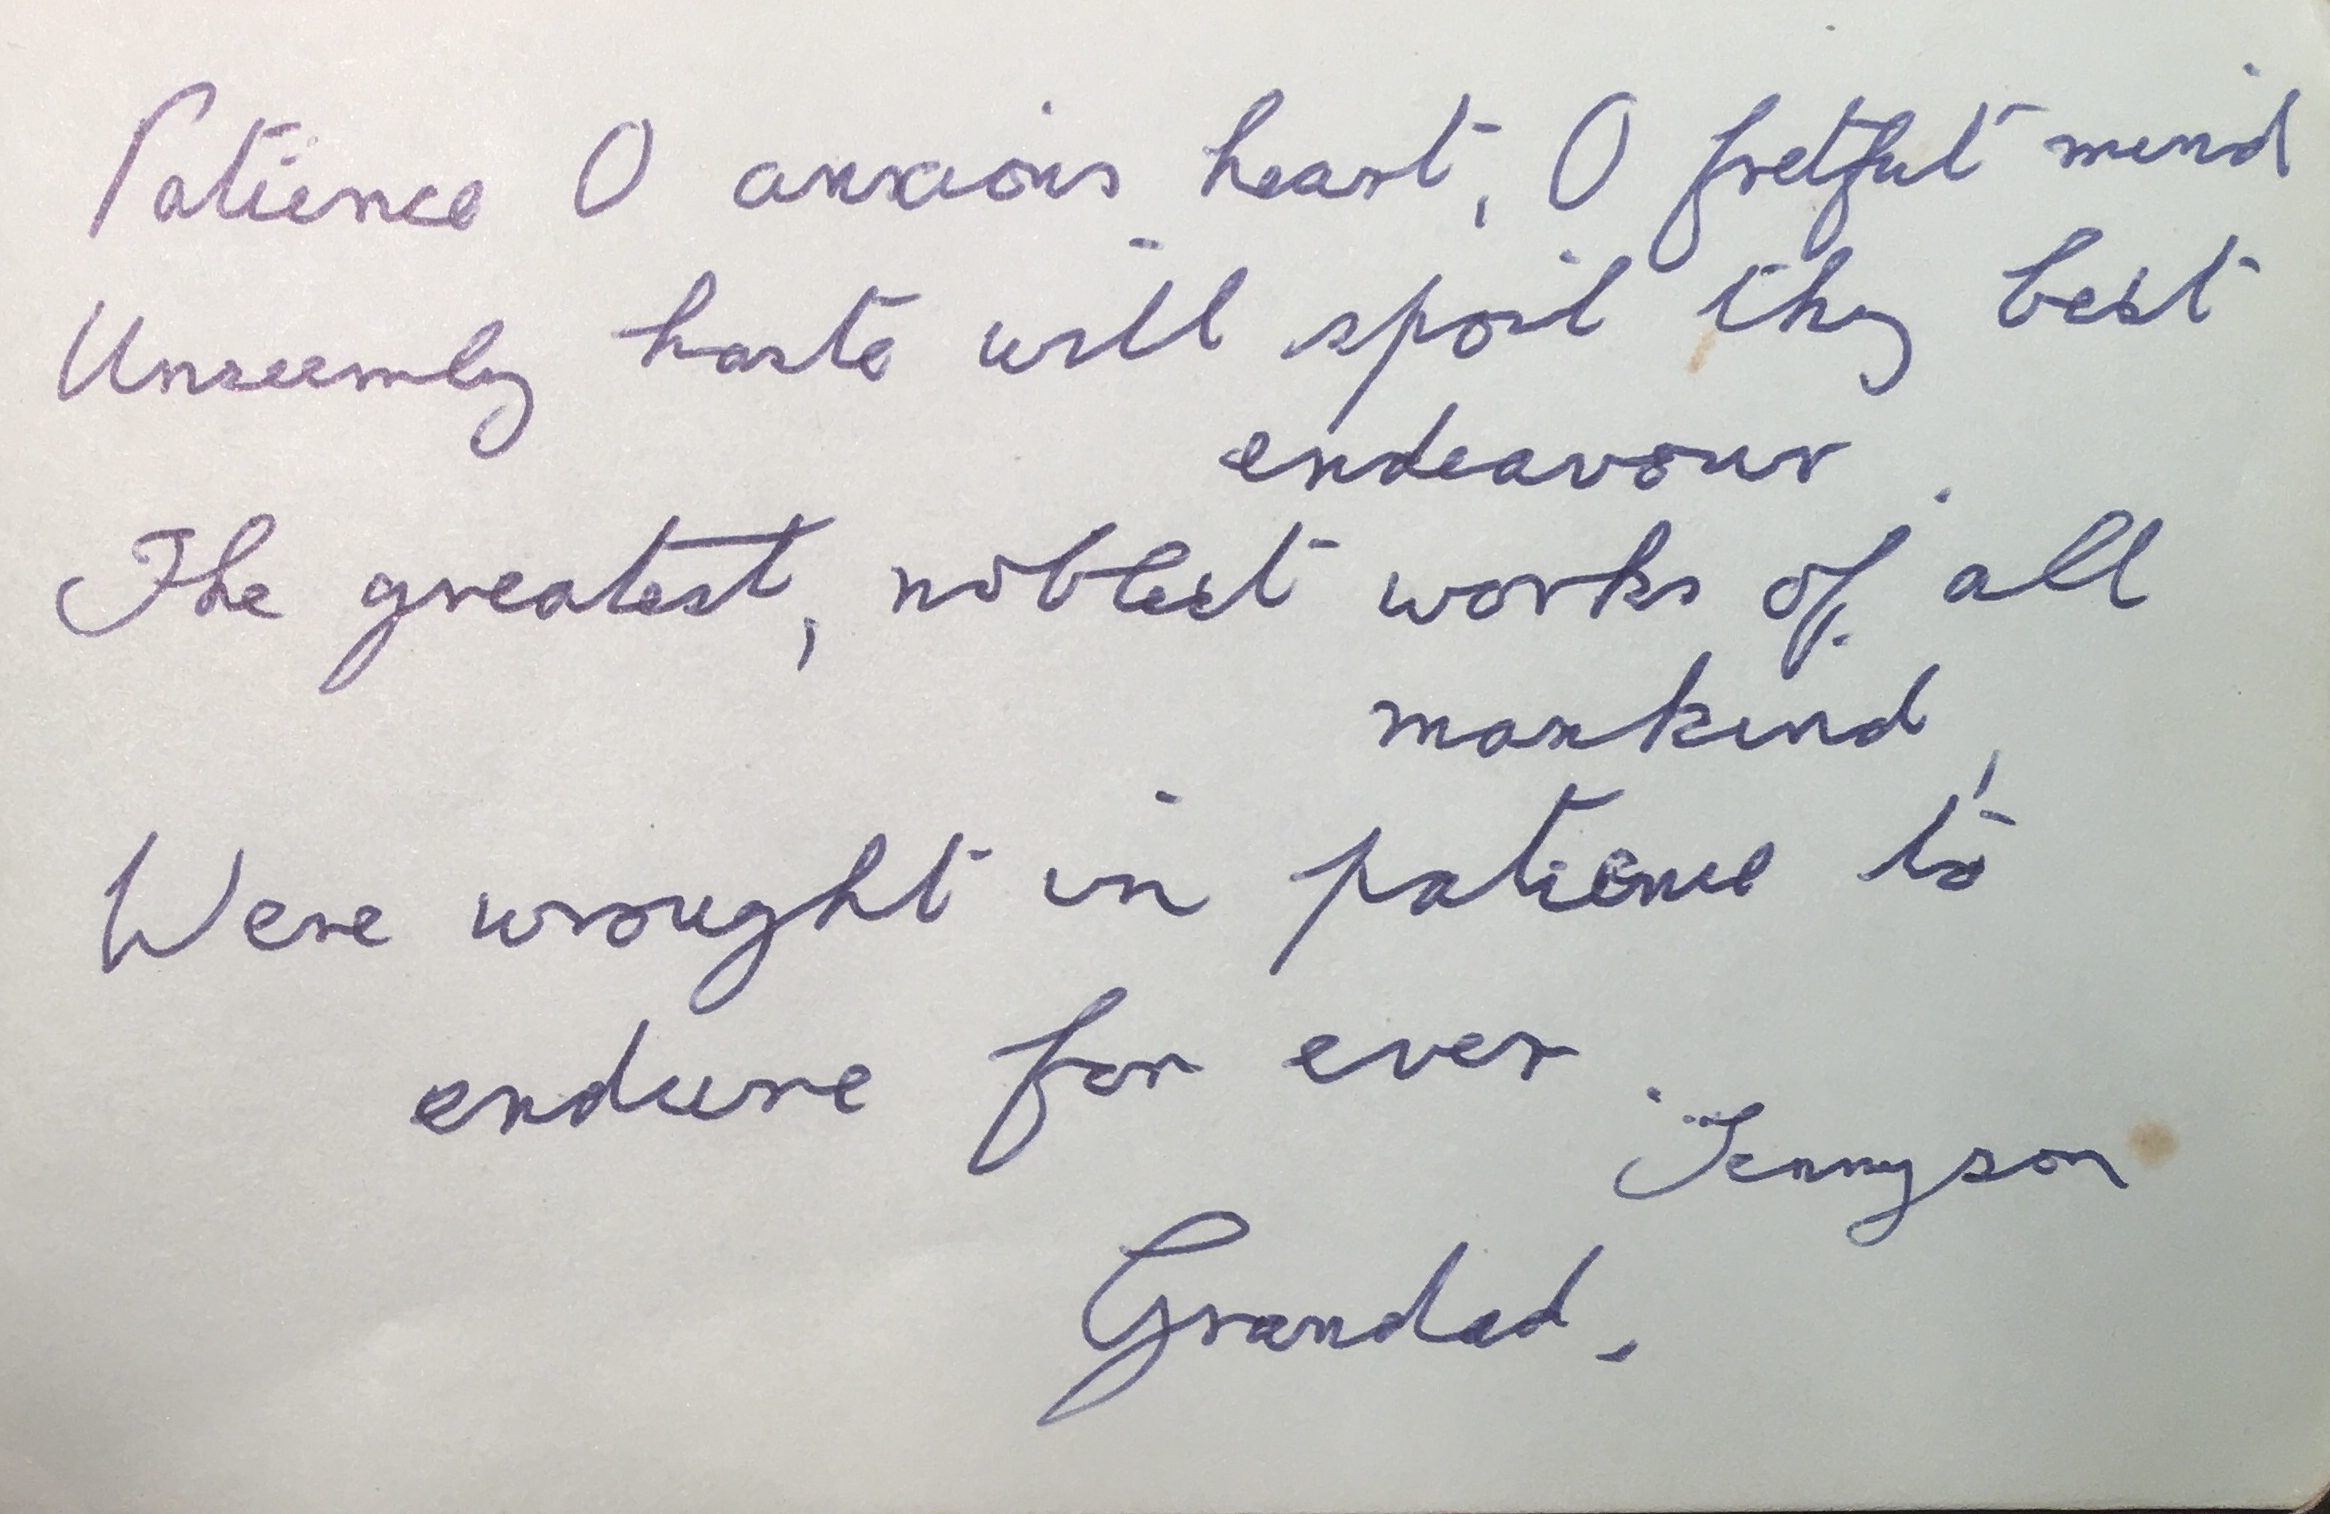 Patience O anxious heart, O fretful mind
Unseemly haste will spoil thy best
endeavour.
The greatest, noblest works of all
mankind,
Were wrought in patience to
endure for ever.
Tennyson
Grandad.